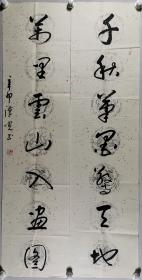 千秋笔墨惊天地
万里云山入画图
辛卯